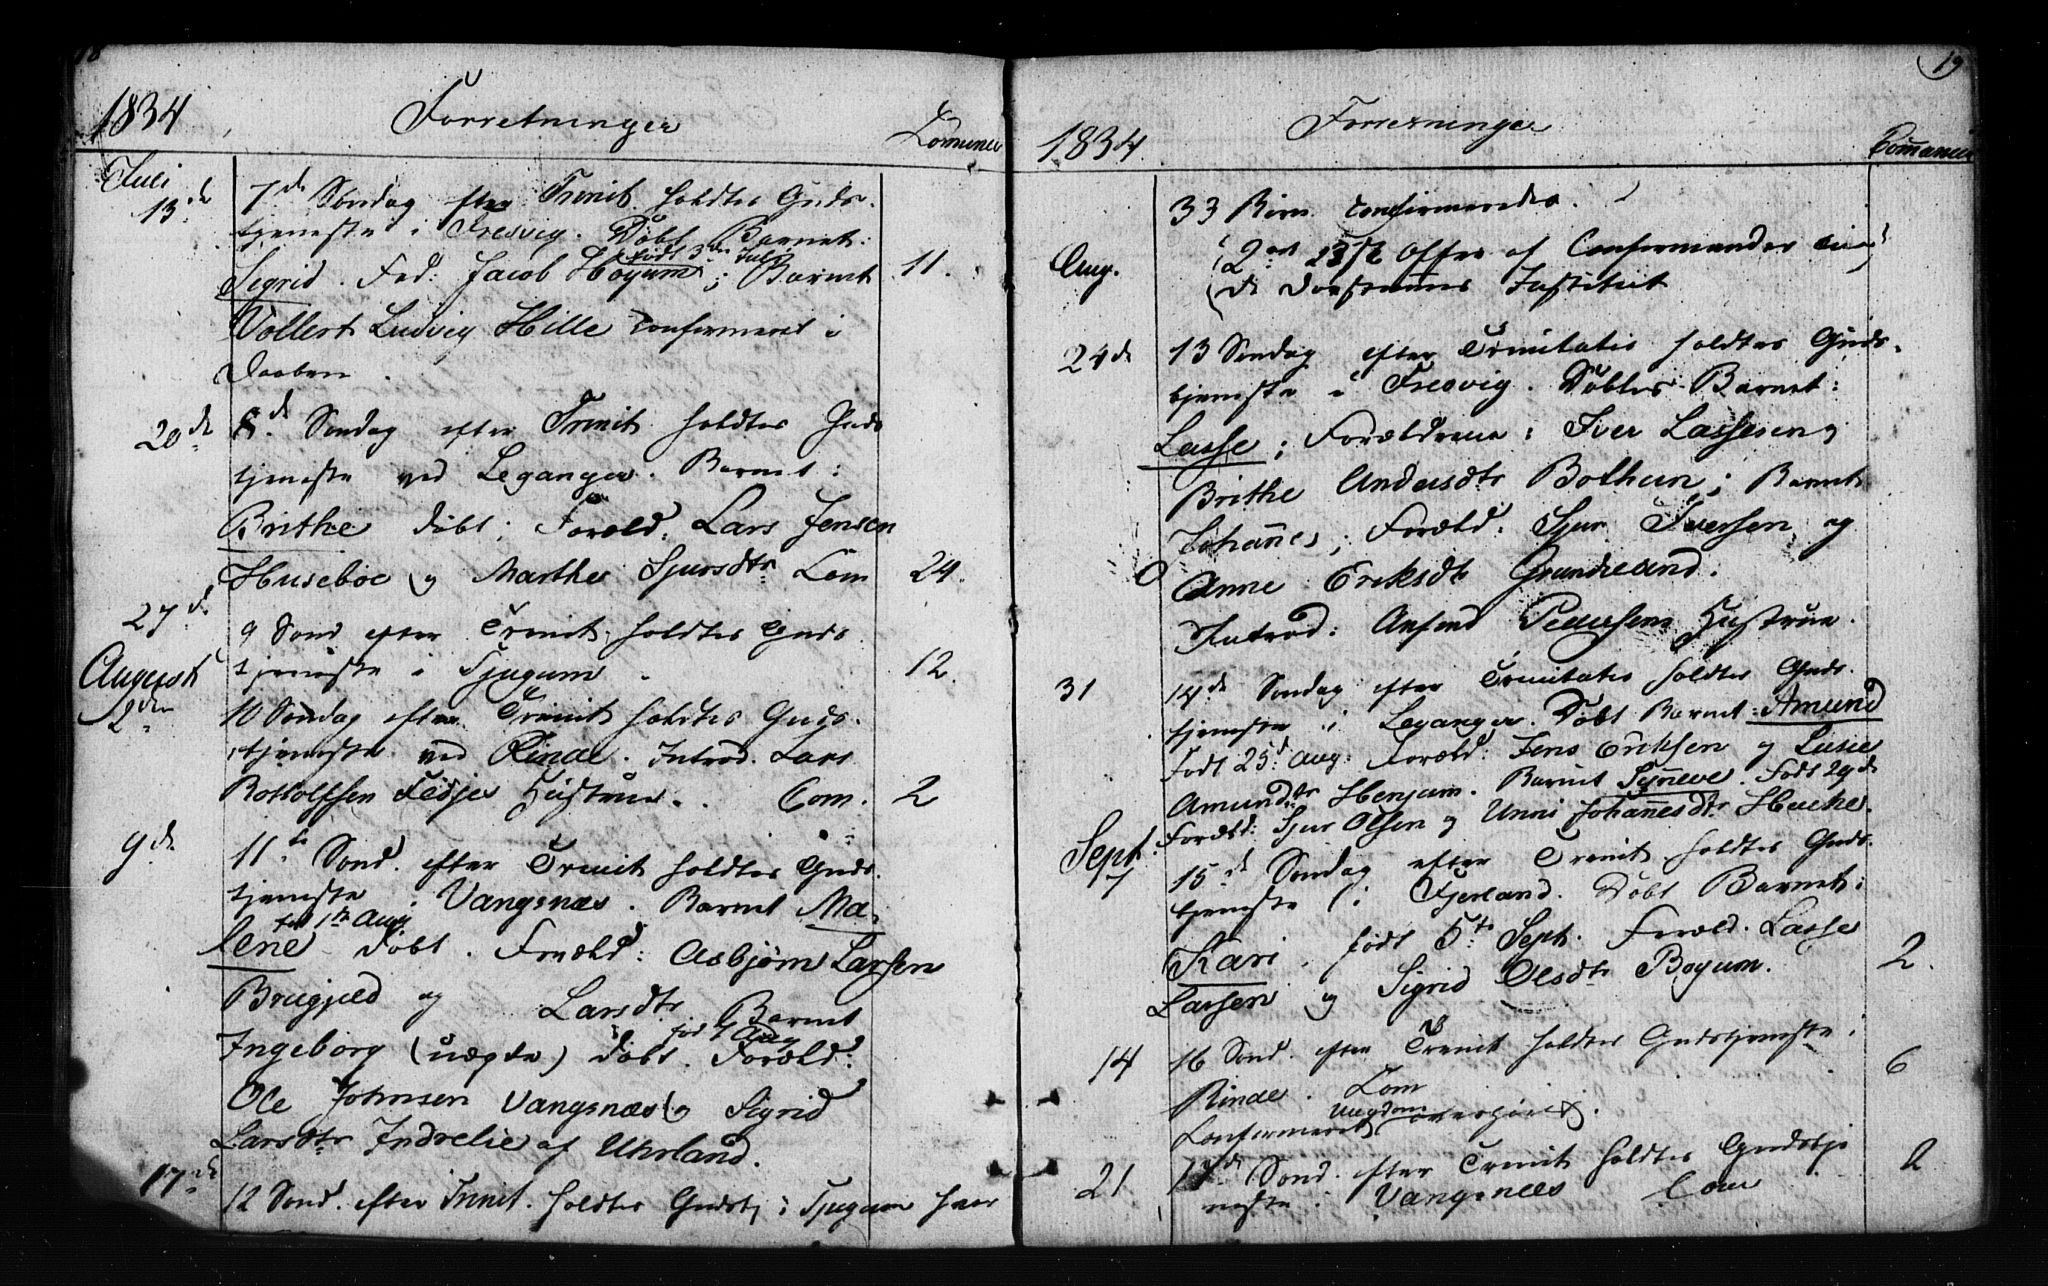 18
1834 Forretninger Comuner
Juli
13de 7de Søndag efter Trinit. holdtes Guds-
tjeneste i Fresvig. Døbt Barnet:
født 3de Juli
Sigrid. Fad: Jacob Høyum; Barnet 11.
Vollert Ludvig Hille confirmeret i
Daaben.
20de 8de Søndag efter Trinit holdtes Guds
tjeneste ved Leganger. Barnet:
Brithe døbt; Foræld: Lars Jensen
Huseboe og Marthe Sjursdtr Com 24.
27de 9 Sønd efter Trinit holdtes Guds
tjeneste i Tjugum. 12.
August
2den 10 Søndag efter Trinit holdtes Guds-
tjeneste ved Rinde. Introd. Lars
Botholfsen Fedje Hustrue. Com. 2
9de 11te Sønd. efter Trinit holdtes Guds-
tjeneste i Vangsnæs. Barnet Ma-
1te Aug
lene døbt. Foræld: Asbjørn Larsen
og Larsdtr Barnet
født Aug
Ingeborg (uægte) døbt. Foræld:
Ole Johnsen Vangsnæs og Sigrid
Larsdtr Indrelie af Uhrland.
17de 12 Sønd. efter Trinit. holdtes Gudstj i Tjugum hvor
19
1834 Forretninger Comuner
33 Børn confirmeredes.
Aug. Offer af Confirmander
Institut
24de 13 Søndag efter Trinitatis holdtes Guds-
tjeneste i Fresvig. Døbtes Barnet:
Lasse; Forældrene: Iver Lassesen og
Brithe Andersdtr Bothun; Barnet
Johannes; Foræld: Sjur Iversen og
Anne Eriksdtr
Introd: Pedersens Hustrue.
31 14de Søndag efter Trinitatis holdtes Guds-
tjeneste i Leganger. Døbt Barnet: Amund
Født 25d Aug: Foræld: Jens Eriksen og Lusie
Amundsdtr Henjum. Barnet Synneve. Født 29de
Foræld: Sjur Olsen og Unni Johannesdtr
Sept.
7 15de Søndag efter Trinit holdtes Guds-
tjeneste i Fjerland. Døbt Barnet:
Kari, født 5te Sept. Foræld. Lasse
Larsen og Sigrid Olsdtr Bøyum. 2.
14 16 Sønd. efter Trinit holdtes Gudstjeneste i
Rinde. Com 6
Ungdom
21 17de Sønd. efter Trinit holdtes Gudstje
neste i Vangsnæs Com 2